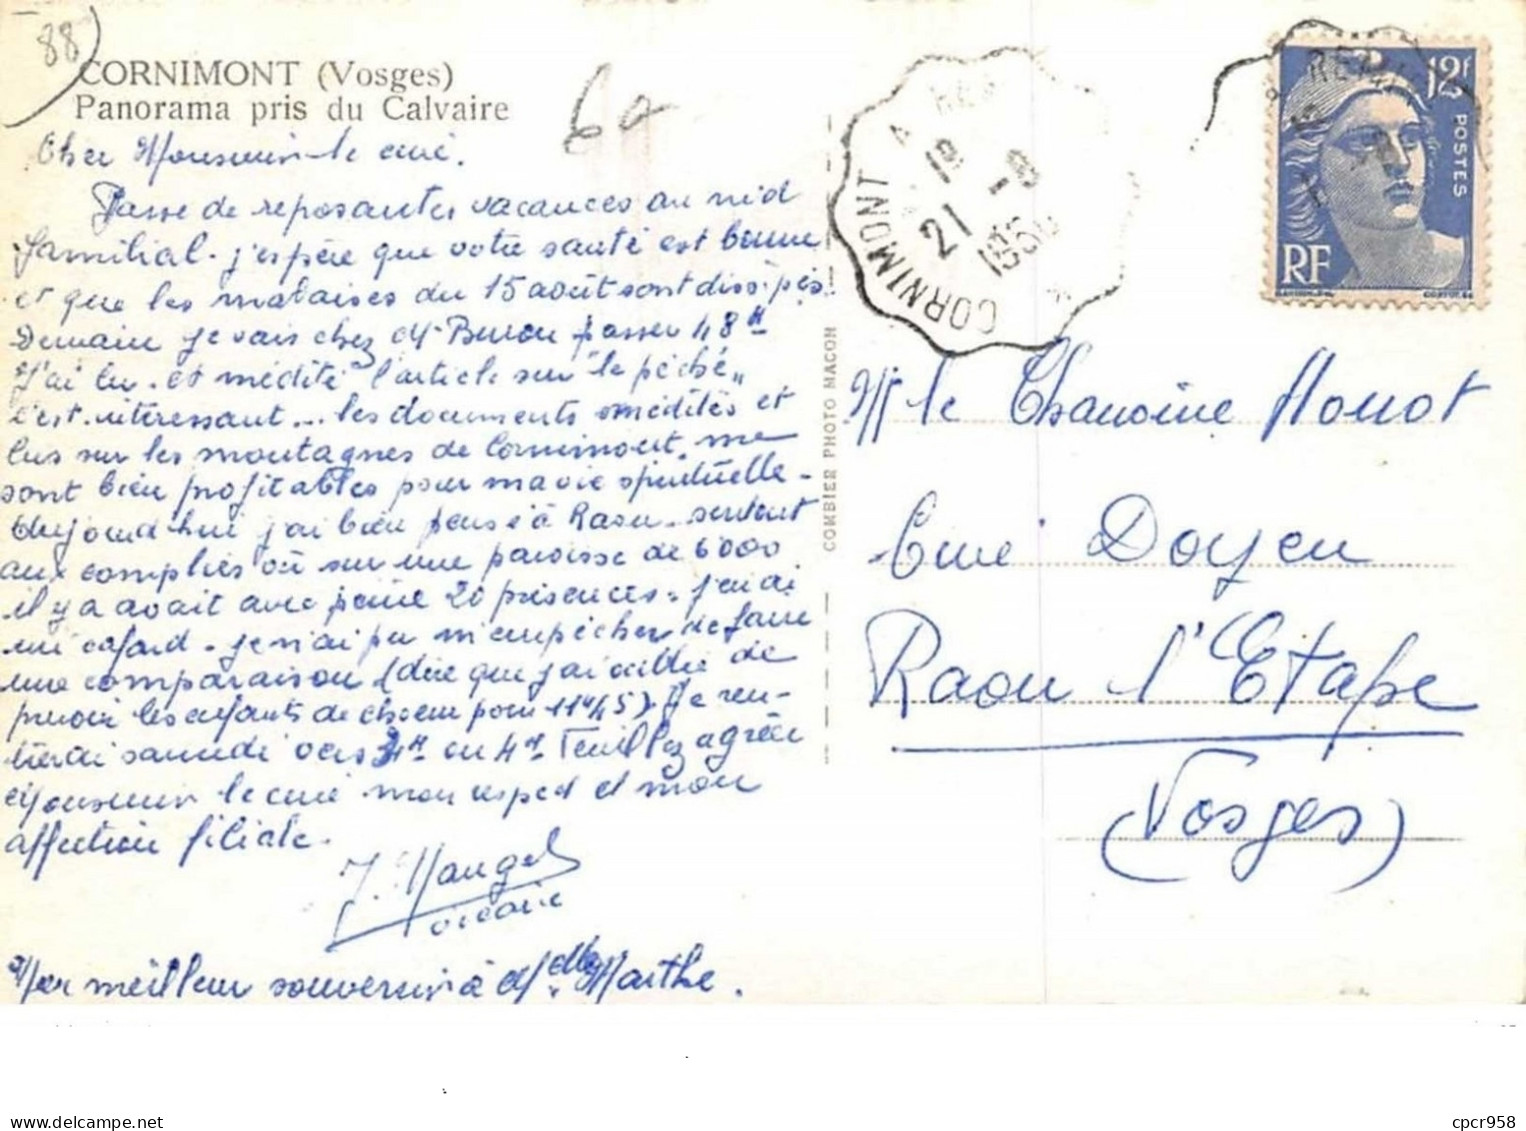 88
CORNIMONT (Vosges)
Panorama pris du Calvaire
6a
Cher Monsieur le curé.
Passe de reposantes vacances au nid
familial. j'espère que votre santé est bonne
et que les malaises du 15 août sont dissipés.
Demain je vais chez Mr passer 48 H
J'ai lu et médité l'article sur "le péché"
c'est intéressant... les documents médités et
lus sur les montagnes de Cornimont me
sont bien profitables pour ma vie spirituelle -
Aujourd'hui j'ai bien pensé à Raon surtout
aux complies où sur une paroisse de 6000
il y a avait avec peine 20 présences. j'en ai
un cafard. je n'ai pu m'empêcher de faire
une comparaison (dire que j'ai oublié de
prévoir les enfants de choeur pour 11h45) Je ren-
trerai samedi vers 3H ou 4H. Veuillez agréer
Monsieur le curé mon respect et mon
affection filiale.
J. Mangel
vicaire
Mon meilleur souvenir à Mlle Marthe.
COMBIER PHOTO MACON
CORNIMONT A REM
19
21 - 8
195
REM
12F
POSTES
RF
Mr le Chanoine Houot
Curé Doyen
Raon l'Etape
(Vosges)
cpcr958